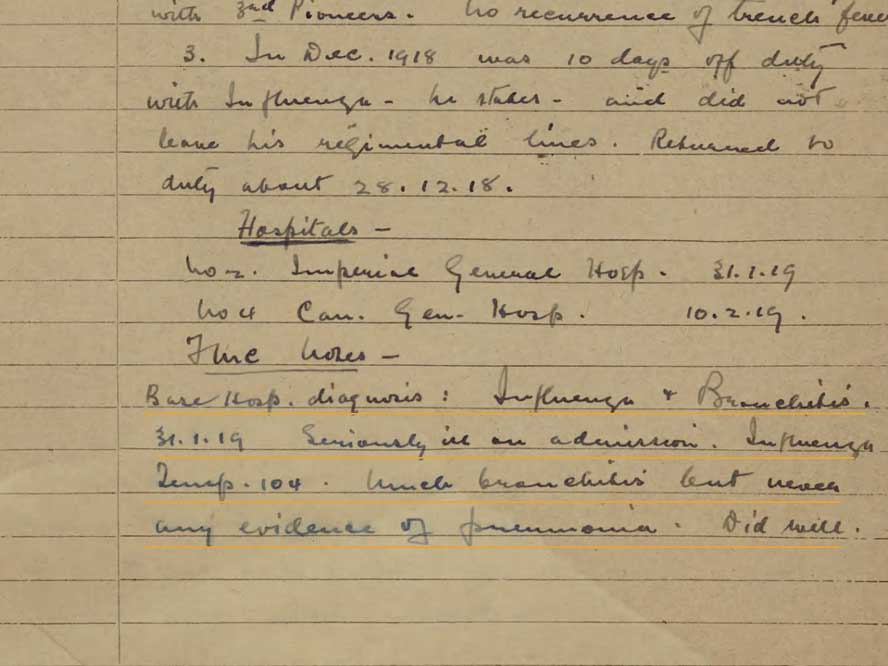 with 3rd Pioneers. No recurrence of trench feve
3. In Dec. 1918 was 10 days off duty
with Influenza - he states - and did not
leave his regimental lines. Returned to
duty about 28.12.18.
Hospitals -
No 2. Imperial General Hosp. 31.1.19
No 4 Can. Gen. Hosp. 10.2.19.
Notes -
Base Hosp. diagnosis: Influenza + Bronchitis.
31.1.19 Seriously ill on admission. Influenza
Temp. 104. Much bronchitis but never
any evidence of pneumonia. Did well.